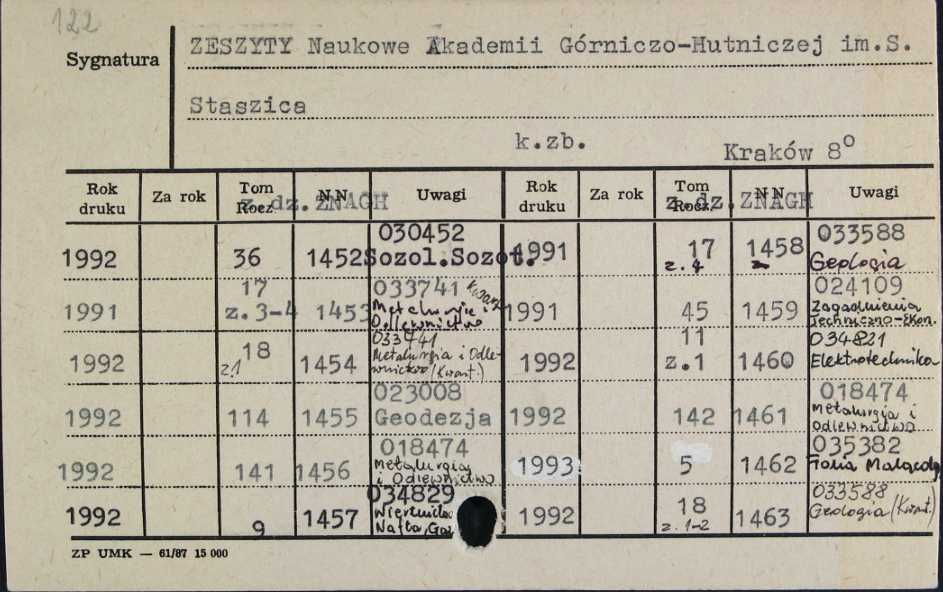 122
Sygnatura
ZESZYTY Naukowe Akademii Górniczo-Hutniczej im.S.
Staszica
k.zb.
Kraków 8°
Rok druku Za rok Tom Rocz. N N Uwagi Rok druku Za rok Tom Rocz. N N Uwagi
z.dz.ZNAGH z.dz.ZNAGH
1992 36 1452 030452 Sozol.Sozot. 1991 17 z.4 1458 033588 Geologia
1991 17 z.3-4 1453 033741 Kwart. Metalurgia i Odlewnictwo 1991 45 1459 024109 Zagadnienia Techniczno-Ekon.
1992 18 z.1 1454 033741 Metalurgia i Odlewnictwo (Kwart.) 1992 11 z.1 1460 034821 Elektrotechnika
1992 114 1455 023008 Geodezja 1992 142 1461 018474 Metalurgia i Odlewnictwo
1992 141 1456 018474 Metalurgia i Odlewnictwo 1993 5 1462 035382 Folia Malacolog
1992 9 1457 034829 Wiertnictwo Nafta, Gaz 1992 18 z.1-2 1463 033588 Geologia (Kwart.)
ZP UMK — 61/87 15 000